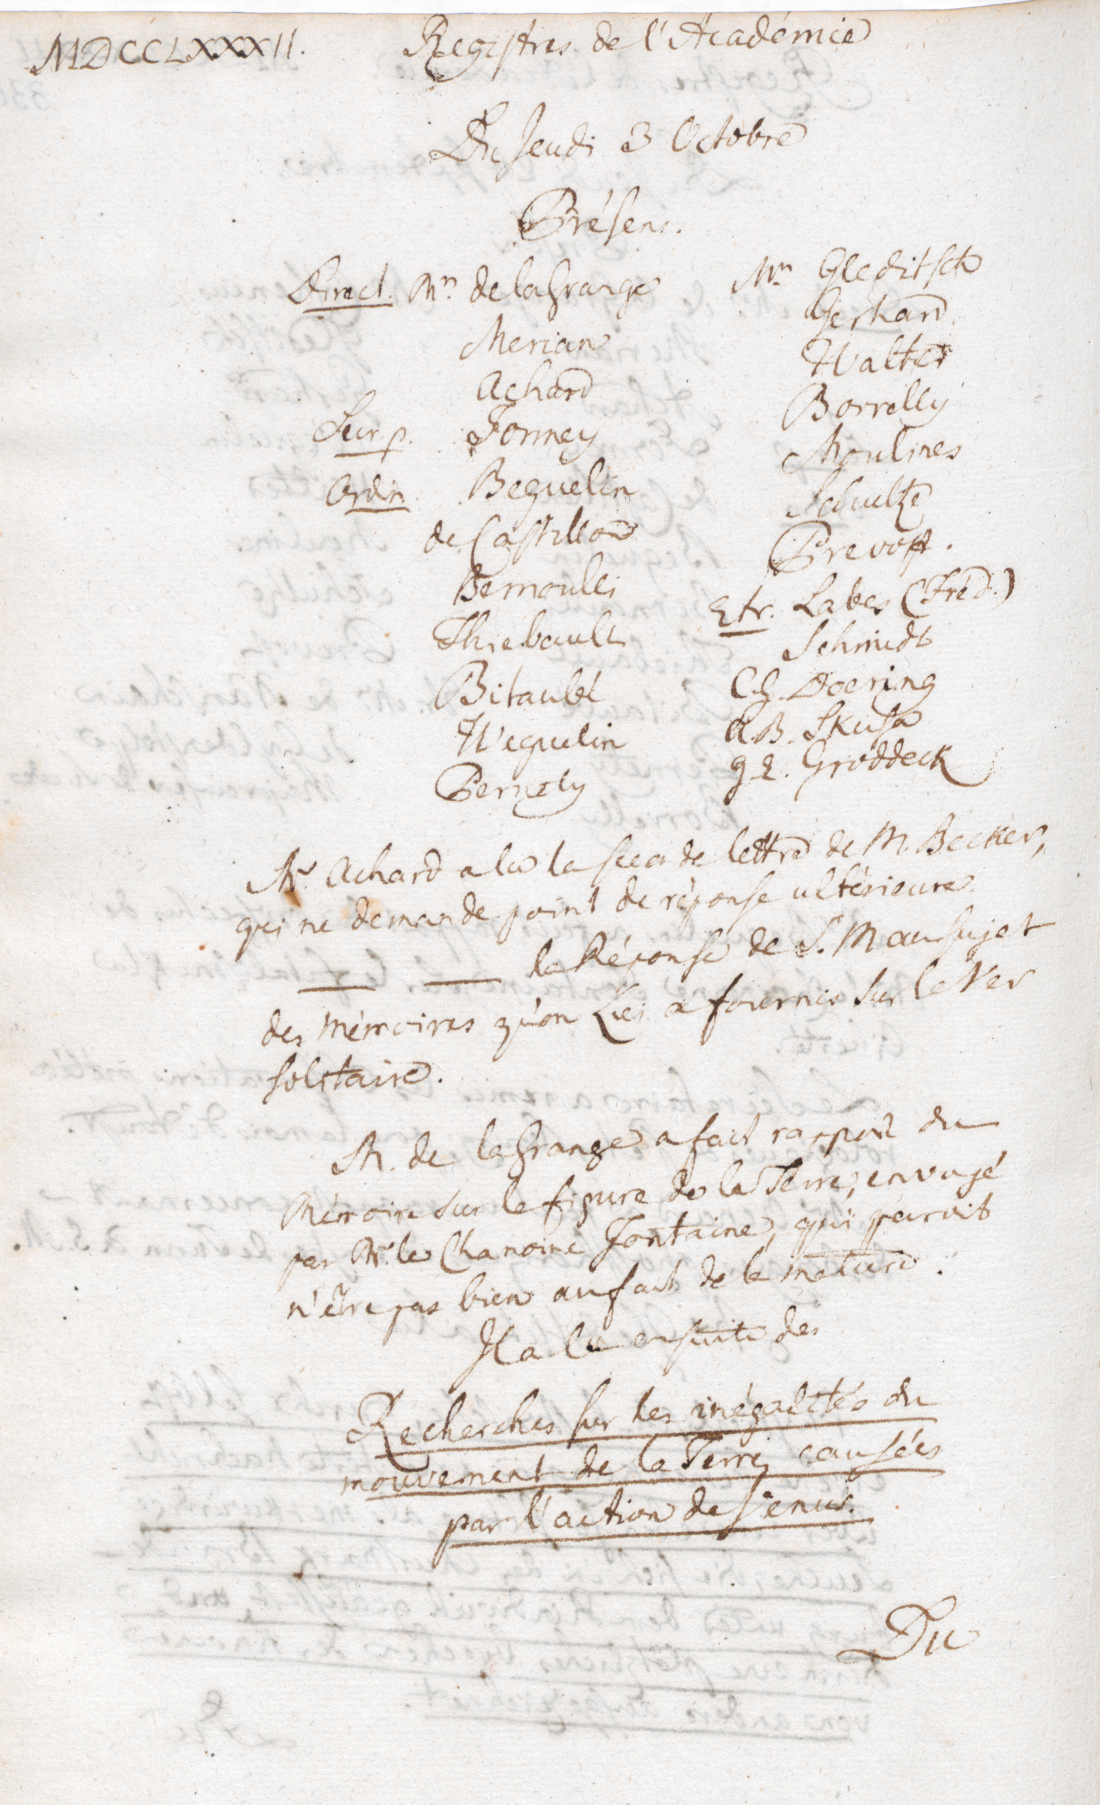 MDCCLXXXII. Registres de l'Académie
Du Jeudi 3 Octobre
Présens.
Direct. Mrs. de la Grange
Merian
Achard
Secr. p. Formey
Ordin. Beguelin
de Castillon
Bernoulli
Thiebault
Bitaubé
Weguelin
Pernety
Mrs. Gleditsch
Gerhard
Walter
Borrelly
Moulines
Schultze
Prevost.
Etr. Labes (Fréd.)
Schmidt
C. G. Doering
A. B. Skusa
G E. Groddeck
Mr. Achard a lu la seconde lettre de M. Becker,
qui ne demande point de réponse ultérieure.
— — la Réponse de S. M au sujet
des Mémoires qu'on Lui a fournis sur le Ver
solitaire.
M. de la Grange a fait rapport du
Mémoire sur la figure de la Terre, envoyé
par Mr. le Chanoine Fontaine, qui paroit
n'être pas bien au fait de la matiere.
Il a lu ensuite des
Recherches sur les inégalités du
mouvement de la Terre, causées
par l'action de Venus.
Du